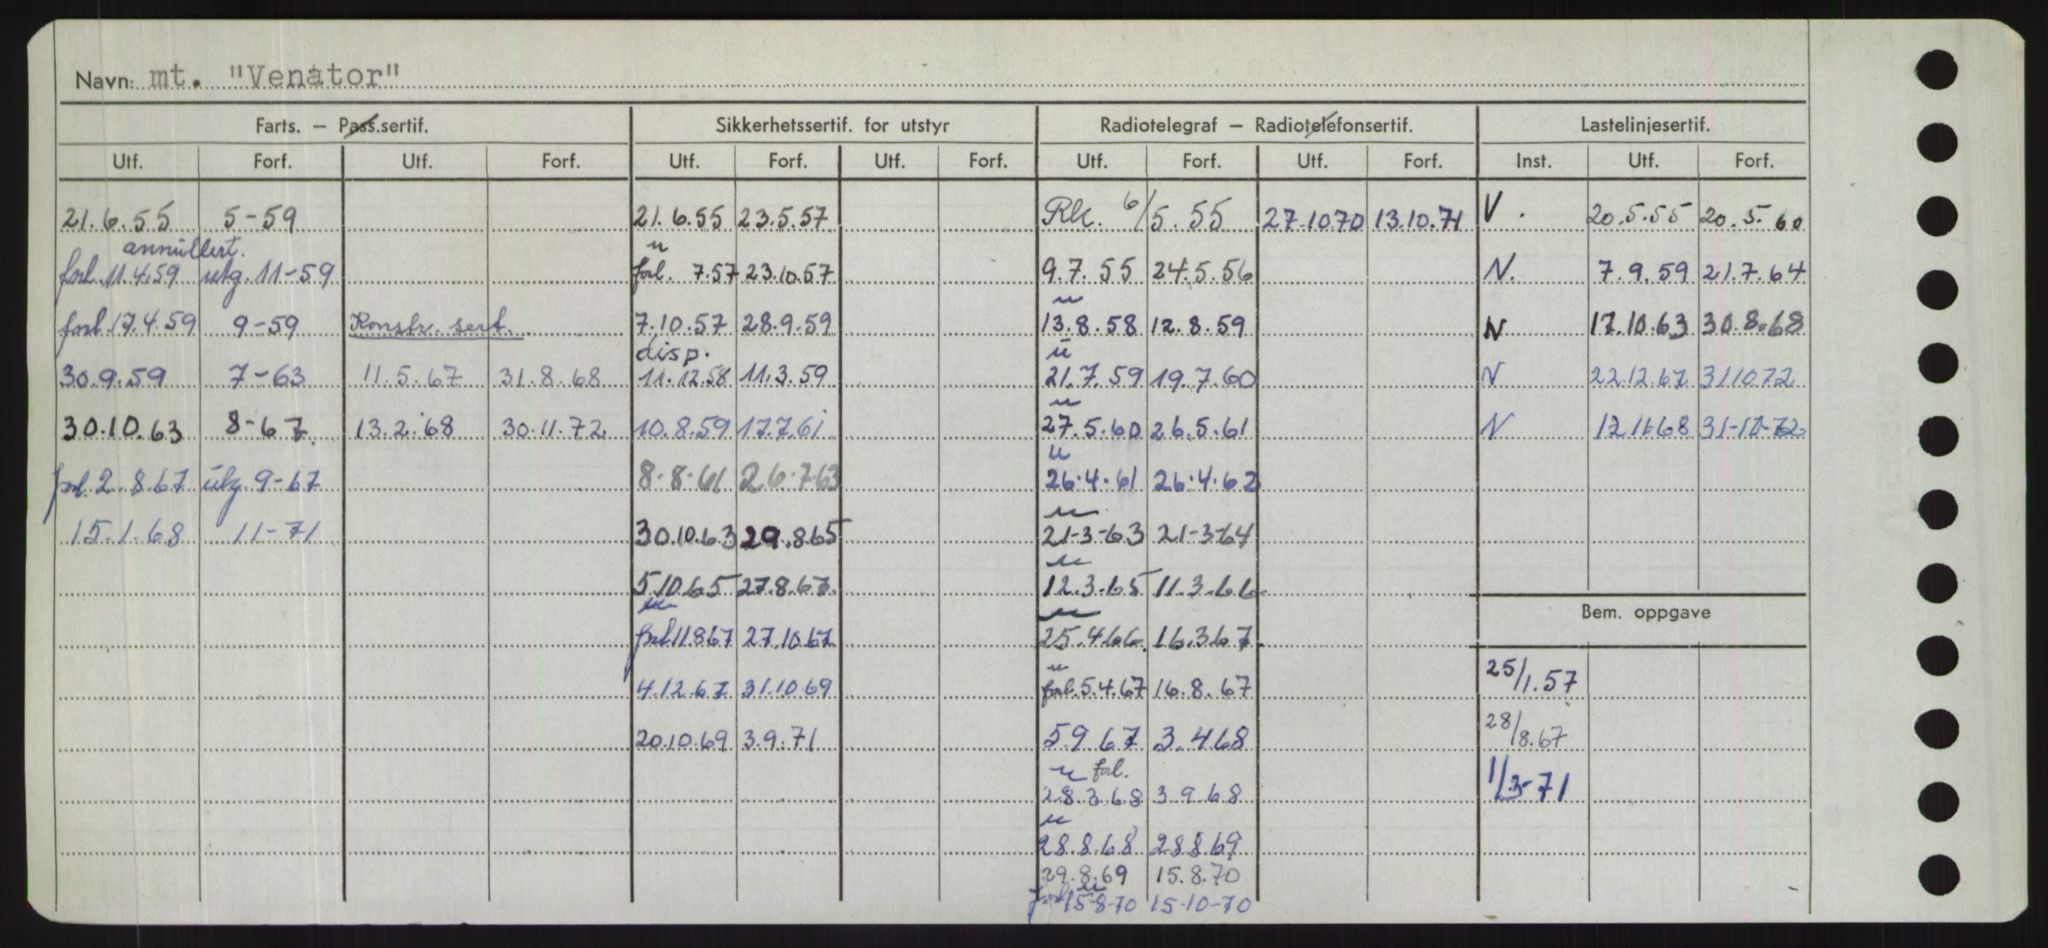 Navn: mt. "Venator"
Farts. – Pass.sertif. Sikkerhetssertif. for utstyr Radiotelegraf – Radiotelefonsertif. Lastelinjesertif.
Utf. Forf. Utf. Forf. Utf. Forf. Utf. Forf. Utf. Forf. Utf. Forf. Inst. Utf. Forf.
21.6.55 5-59 21.6.55 23.5.57 Rk. 6/5.55 27.10 70 13.10.71 V. 20.5.55 20.5.60
annullert. u
forl. 11.4.59 utg. 11-59 forl. 7.57 23.10.57 9.7.55 24.5.56 N. 7.9.59 21.7.64
u
forl. 17.4.59 9-59 Konstr. sert. 7.10.57 28.9.59 13.8.58 12.8.59 N 17.10.63 30.8.68
disp. u
30.9.59 7-63 11.5.67 31.8.68 11.12.58 11.3.59 21.7.59 19.7.60 N 22.12.67 31 10 72
u
30.10.63 8-67. 13.2.68 30.11.72 10.8.59 17.7.61 27.5.60 26.5.61 N 12.11.68 31-10-72
u
forl. 2.8.67 utg 9-67 8-8-61 26.7.63 26.4.61 26.4.62
u
15.1.68 11-71 30.10.63 29.8.65 21-3-63 21-3-64
u
5.10.65 27.8.67. 12.3.65 11.3.66
Bem. oppgave
u u
forl. 11.8.67 27.10.67 25.4.66. 16.3.67.
u
4.12.67 31.10.69 forl. 5.4.67 16.8.67 25/1.57
20.10.69 3.9.71 5.9 67 3.4.68 28/8.67
u forl.
28.3.68 3.9.68 1/3-71
u
28.8.68 28.8.69
29.8.69 15.8.70
u
forl. 15-8-70 15-10-70